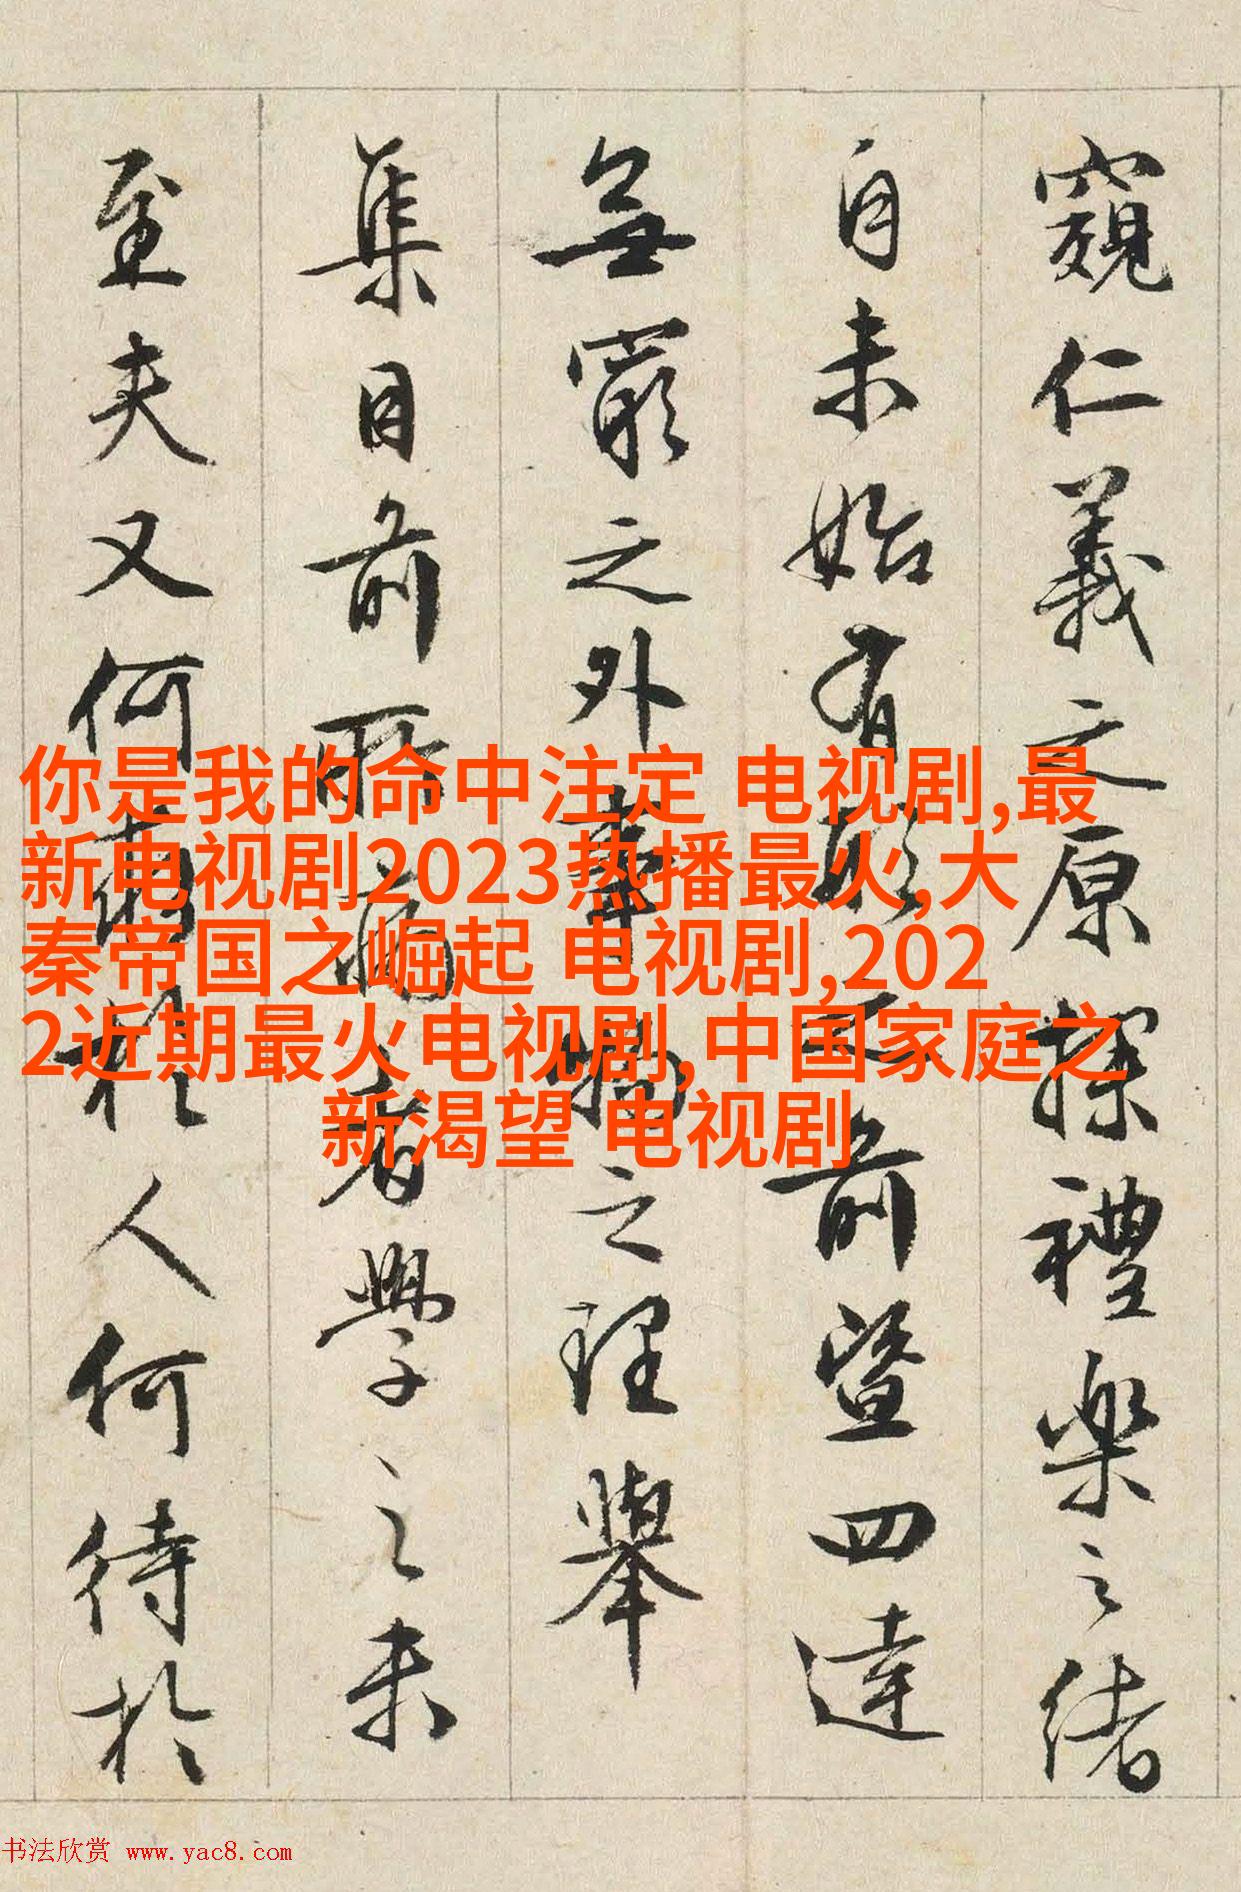 窺仁義之原探禮樂之緒
自未始有形之前暨四達
無窮之外事物之理舉
集目前所病者學之未
至夫又何求於人何待於
你是我的命中注定 电视剧,最
新电视剧2023热播最火,大
秦帝国之崛起 电视剧,202
2近期最火电视剧,中国家庭之
新渴望 电视剧
书法欣赏 www.yac8.com